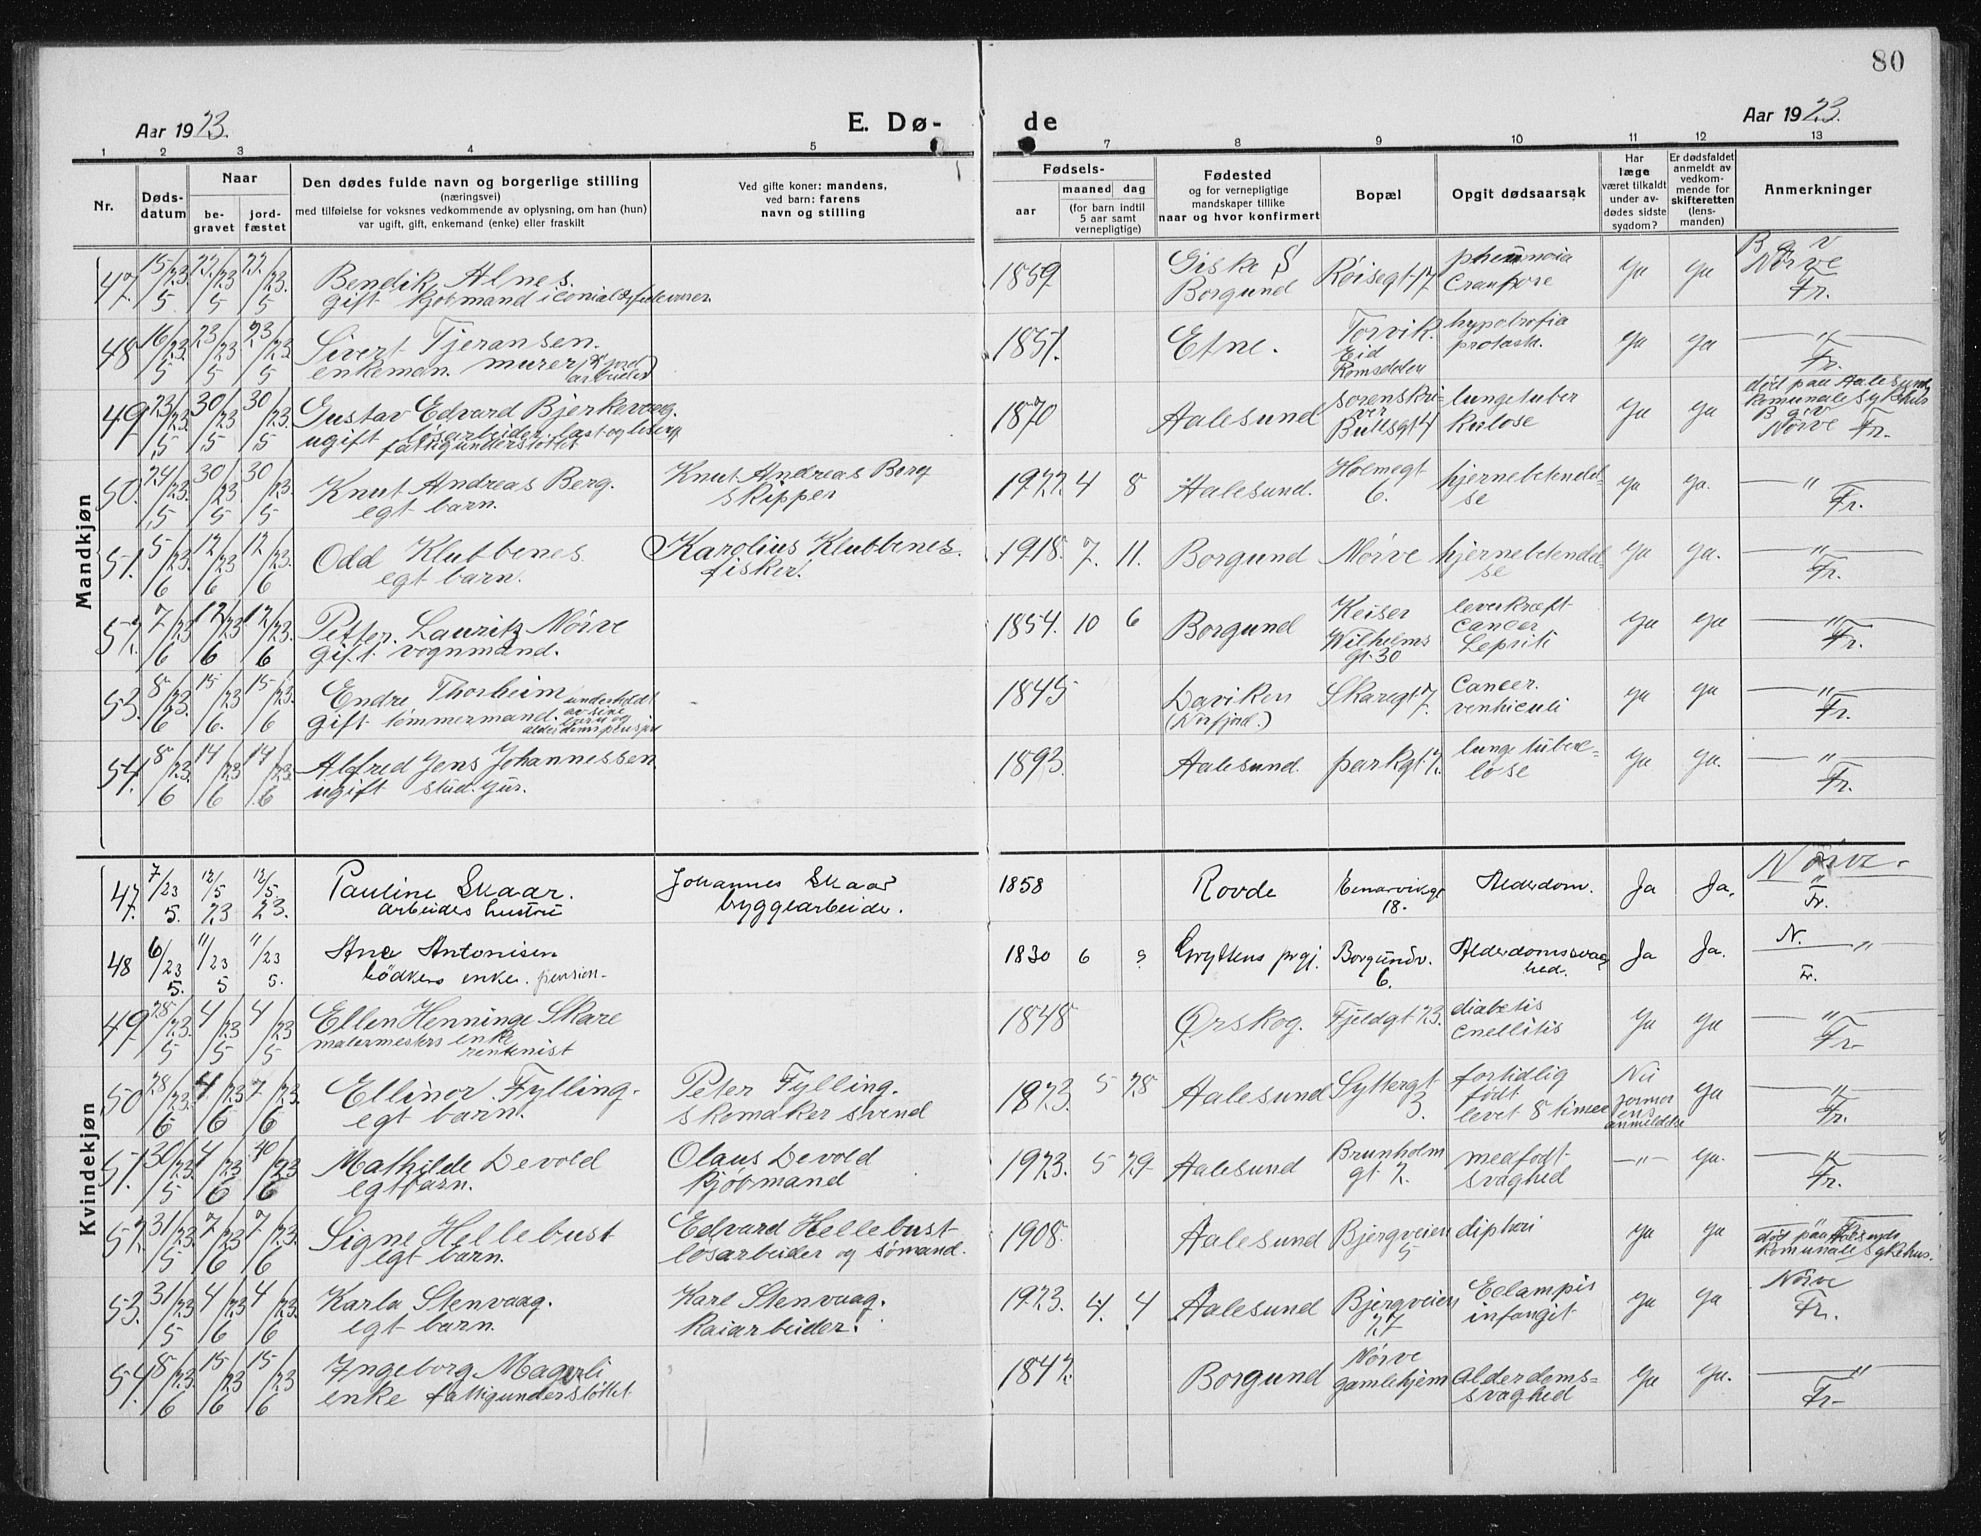 80
Aar 1923.
E. Dø-
de
Aar 1923.
1 2 3 4 5 7 8 9 10 11 12 13
Nr.
Døds-
datum
Naar
be-
gravet
jord-
fæstet
Den dødes fulde navn og borgerlige stilling
(næringsvei)
med tilføielse for voksnes vedkommende av oplysning, om han (hun)
var ugift, gift, enkemand (enke) eller fraskilt
Ved gifte koner: mandens,
ved barn: farens
navn og stilling
Fødsels-
aar
maaned dag
(for barn indtil
5 aar samt
vernepligtige)
Fødested
og for vernepligtige
mandskaper tillike
naar og hvor konfirmert
Bopæl
Opgit dødsaarsak
Har
læge
været tilkaldt
under av-
dødes sidste
sygdom?
Er dødsfaldet
anmeldt av
vedkom-
mende for
skifteretten
(lens-
manden)
Anmerkninger
Mandkjøn
47. 15/5 23. 22/5 23 22/5 23.
Bendik Alnes.
gift kjøbmand
1859
Giske
Borgund
Røisegt 17
ya ya
Nørve
Fr.
48. 16/5 23. 23/5 23 23/5 23.
Sivert Tjeransen.
enkeman. murer
1851.
Etne.
Torvik.
Eid
Romsdalen
ya ya
— " —
Fr.
49. 23/5 23. 30/5 23 30/5 23.
Gustav Edvard Bjerkevaag.
ugift løsarbeider
fattigunderstøttet
1870
Aalesund
sorenskri-
ver
Bullsgt 4
lungetuber
kulose
ya ya
død paa Aalesunds
komunale sykehus
Nørve Fr.
50. 24/5 23. 30/5 23 30/5 23.
Knut Andreas Berg.
egt barn.
Knut Andreas Berg
skipper
1922 4 8
Aalesund.
Holmegt
6.
hjernebetendel-
se
ya ya.
— " —
Fr.
51. 5/6 23. 12/6 23 12/6 23.
Odd Klubbenes
egt barn.
Karolius Klubbenes.
fisker.
1918. 7. 11.
Borgund
Nørve
hjernebetendel-
se
ya ya.
— " —
Fr.
52. 7/6 23 12/6 23 12/6 23.
Petter Lauritz Nørve
gift. vognmand.
1854. 10 6
Borgund
Keiser
Wilhelms
gt 30
leverkræft
cancer
ya ya
— " —
Fr.
53. 8/6 23. 15/6. 23 15/6 23.
Endre Thorheim
gift tømmermand. underholdt
av sine
barn og
alderdomspensjon
1845
Daviken
Skaregt 7.
Cancer.
ya ya
— " —
Fr.
54. 8/6 23. 14/6 23 14/6 23.
Alfred Jens Johannessen
ugift stud. jur.
1893.
Aalesund.
parkgt 2.
lungetuberk=
lose
ya ya.
— " —
Fr.
Kvindekjøn
47. 7/5. 23 12/5 23 12/5 23.
Pauline Skaar.
arbeiders hustru
Johannes Skaar
byggearbeider.
1858
Rovde
18.
Alderdom.
Ja Ja.
Nørve.
"
Fr.
48 6/5. 23 11/5 23 11/5. 23
Ane Antonisen
bødkers enke. pension-
1830 6 9
Gryttens prgj.
Borgundv.
6.
Alderdomssvag
hed.
Ja Ja.
N. — "
Fr.
49. 28/5 23. 4/5 23 4/5 23
Ellen Henninge Skare
malermesters enke
rentenist
1848
Ørskog.
Fjeldgt 23.
diabetis
ya ya
— " —
Fr-
50 28/6 23. 4/6 23 7/6 23.
Ellinor Fylling-
egt barn.
Peter Fylling.
skomaker svend
1923. 5 28
Aalesund
Syttergt
3.
fortidlig
født
levet 8 timer
Nei
jormor
ens
anmeldelse
ya
— " —
Fr.
51. 30/5 23. 4/6 23 10/6 23
Mathilde Devold
egt barn.
Olaus Devold
kjøbmand
1923. 5 29.
Aalesund
Brunholm
gt 2.
medfødt
svaghed
— " — ya.
— " —
Fr.
52. 31/5 23. 7/6 23 7/6 23.
Signe Hellebust
egt barn.
Edvard Hellebust
løsarbeider og sømand.
1908.
Aalesund
Bjergveien
5
dipteri
ya ya
død paa Aalesunds
komunale sykehus.
53. 31/5 23. 4/6 23 4/6 23.
Karla Stenvaag.
egt barn.
Karl Stenvaag.
Kaiarbeider.
1923. 4. 4
Aalesund
Bjergveien
27
Eclampis
infangit
ya ya
Nørve
Fr.
54. 8/6 23. 15/6 23 15/6 23
Ingeborg Magerli
enke fattigunderstøttet
1842.
Borgund
Nørve
gamlehjem
Alderdoms=
svaghed
ya ya.
— " —
Fr-